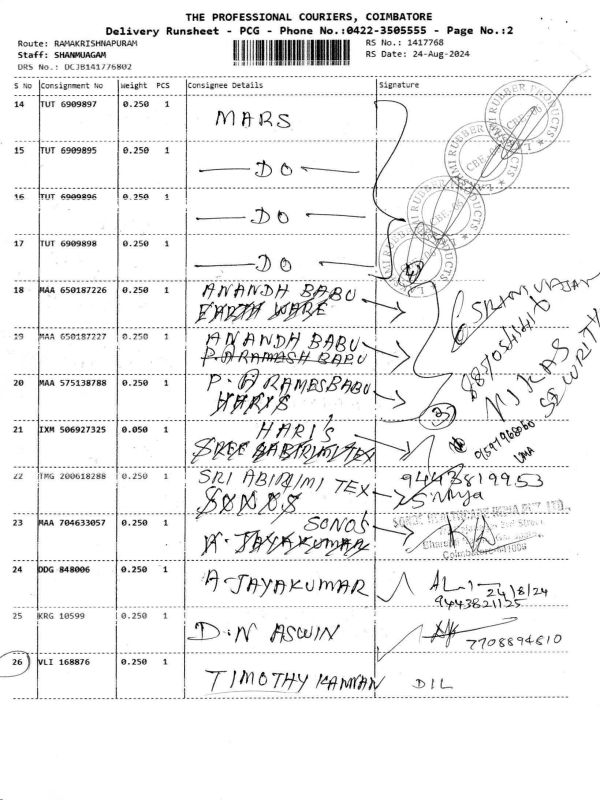 THE PROFESSIONAL COURIERS, COIMBATORE
Delivery Runsheet - PCG - Phone No.:0422-3505555 - Page No.:2
Route: RAMAKRISHNAPURAM
RS No.: 1417768
Staff: SHANMUAGAM
RS Date: 24-Aug-2024
DRS No.: DCJB141776802
S No Consignment No Weight PCS Consignee Details Signature
14 TUT 6909897 0.250 1 MARS
15 TUT 6909895 0.250 1 DO
16 TUT 6909896 0.250 1 DO
17 TUT 6909898 0.250 1 DO
4
18 MAA 650187226 0.250 1 ANANDH BABU
EARTH WARE
19 MAA 650187227 0.250 1 ANANDH BABU
P.A RAMASH BABU
20 MAA 575138788 0.250 1 P.A RAMESBABU
HARIS
3
21 IXM 506927325 0.050 1 HARI'S
SREE BABIRIMI TEX
22 TMG 200618288 0.250 1 SRI ABIRIMI TEX 9443819953
SONOS
23 MAA 704633057 0.250 1 SONOS
A. JAYAKUMAR
24 DDG 848006 0.250 1 A-JAYAKUMAR 24/8/24
9443821125
25 KRG 10599 0.250 1 D.N ASWIN 7708894610
26 VLI 168876 0.250 1 TIMOTHY KANNAN DIL